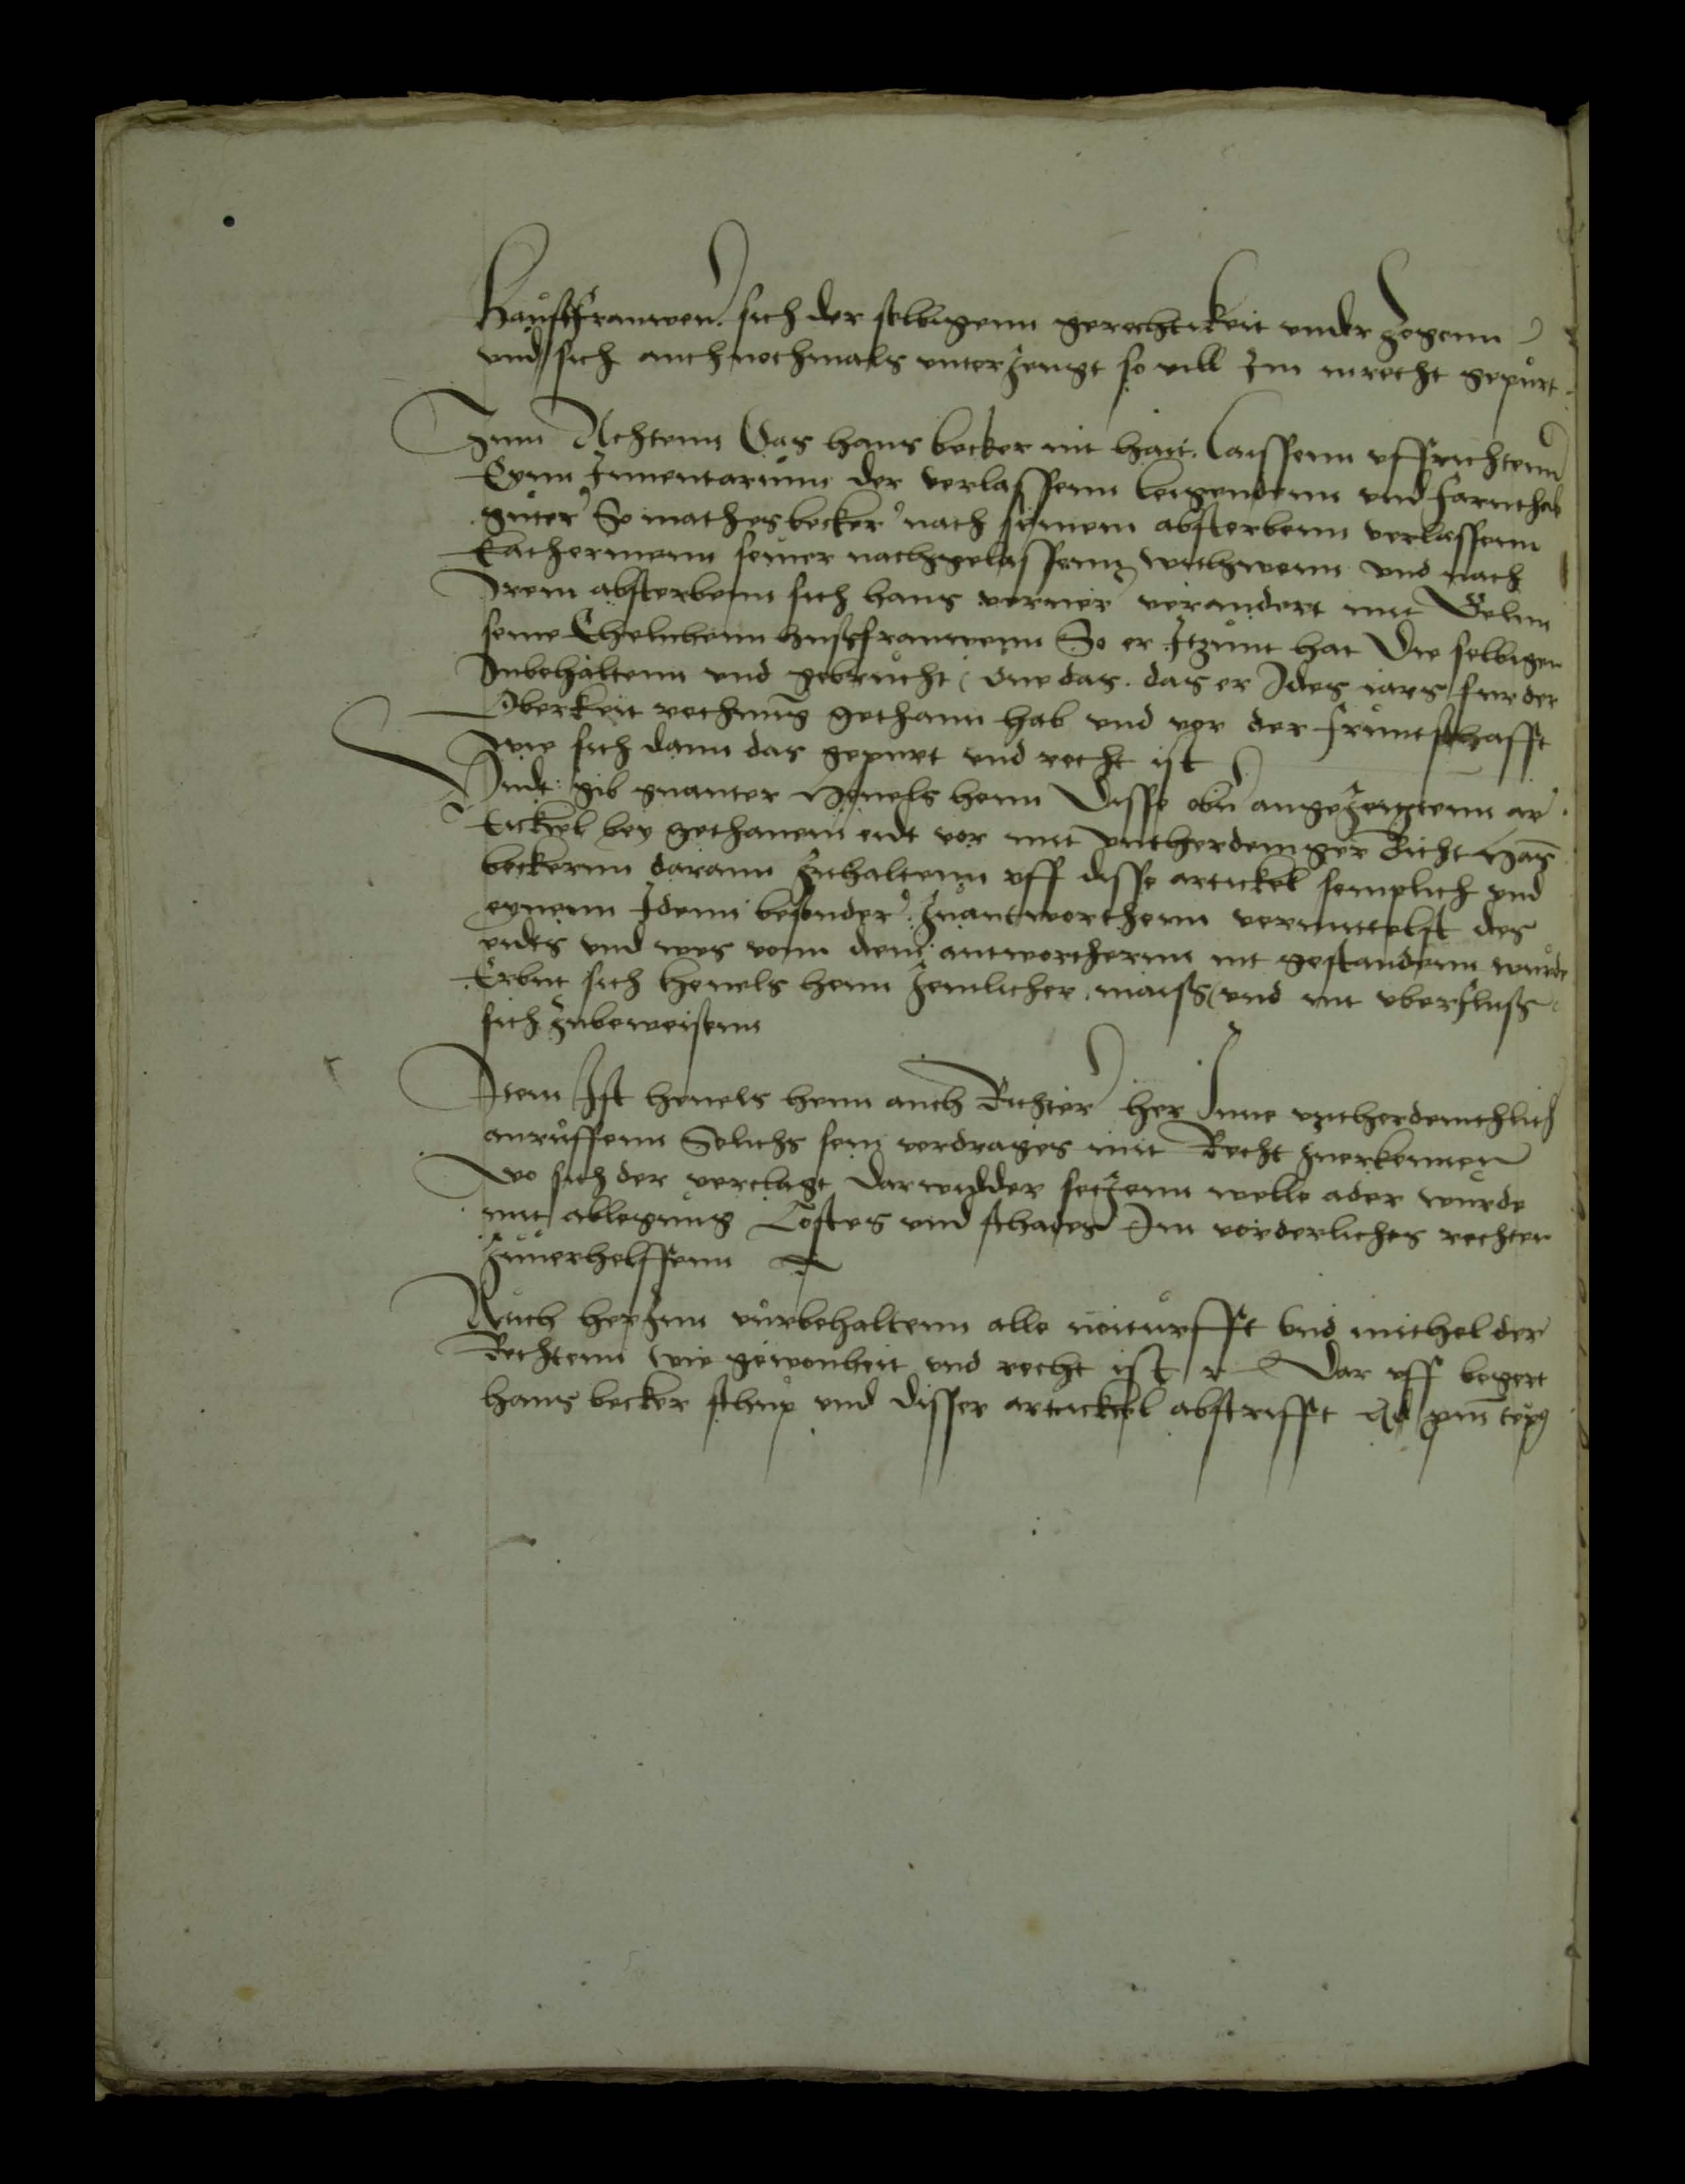 Haußfrauwen sich der selbigenn gerechtikeit underzogenn
und sich auch nochmals unterzeugt so vill Im mrecht gepurt
Zum Achtenn Das hans becker nit hait laissenn uffrichtenn
Eynn Inventarium der verlassenn leigendenn und farnthab
guter So mathes becker nach seinem absterbenn verlassenn
kathermenn seiner nachgelassenn withwenn und nach
Irem absterbenn sich hans verner verandert mit Gelnn
seine Ehelichenn hußfrauwenn So er Itzunt hat Die selbigen
Inbehaltenn und gebrucht one das das er Ides iars fur der
Oberkeit rechnung gethann hab und vor der fruntschafft
wie sich dann das gepurt und recht ist
Und gib gnanter Henels henn Disse obn angezeigtenn ar
tickel bey gethanem eidt vor mit untherdeniger Bitht Hans
beckernn darann zuhaltenn uff disse artickel semplich und
eynenn Idenn besonder zuantworthenn vermittelst des
eides und wes vonn dem antworthernn nit gestandenn wurde
Erbut sich henels henn zemlicher maiß und nit uberfluß
sich zubeweisenn
Item Ist henels henn auch Richter her Inne untherdenthlich
anruffenn Solichs sein verdrages mit Recht zuerkennen
wo sich der verclagt darwidder setzenn welle ader wurde
mit ablegung Costes und schades Im vorderlichs rechten
zuverhelffenn
Auch herInn vurbehaltenn alle noiturfft und mithel der
Rechtenn wie gewonheit und recht ist Dar uff begert
hans becker schup und disser artickel abstrifft Ad